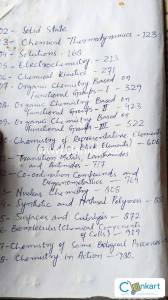 02- Solid State
03- Chemical Thermodynamics - 123
04- Solutions - 168
05- Electrochemistry - 213
06- Chemical Kinetics - 271
07- Organic Chemistry Based on
Functional Groups-I - 329
08- Organic Chemistry Based on
Functional Groups-II - 423
09- Organic Chemistry Based on
Functional Groups-III - 522
Chemistry of Representative Elements
Block Elements) - 606
Transition Metals, Lanthanides
and Actinides - 717
Co-ordination Compounds and
Organometallics - 769
Nuclear Chemistry - 805
Synthetic and Natural Polymers
5- Surfaces and Catalysis - 872
6- Biomolecules (Chemical Components
of Cells) - 919
7- Chemistry of Some Biological Processes
8- Chemistry in Action - 980
Clankart